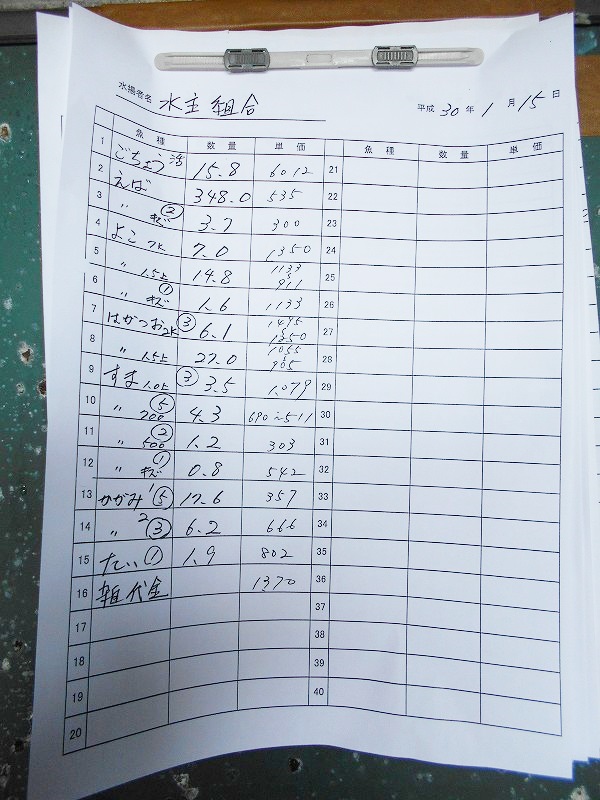 水揚者名 水主組合
平成 30 年 1 月 15 日
魚種 数量 単価 魚種 数量 単価
1 ごちょう 活 15.8 6012 21
2 えば 348.0 535 22
3 〃 ② キズ 3.7 300 23
4 よこ 2上 7.0 1350 24
5 〃 1.5上 14.8 1133 〜 911 25
6 〃 ① キズ 1.6 1133 26
7 はがつお 2K ③ 6.1 1495 〜 1350 27
8 〃 1.5上 27.0 1055 〜 905 28
9 すま 1.0上 ③ 3.5 1.079 29
10 〃 ⑤ 700 4.3 690〜511 30
11 〃 ② 500 1.2 303 31
12 〃 ① キズ 0.8 542 32
13 かがみ 1 ⑤ 17.6 357 33
14 〃 2 ③ 6.2 666 34
15 たい ① 1.9 802 35
16 箱代金 1370 36
17 37
18 38
19 39
20 40